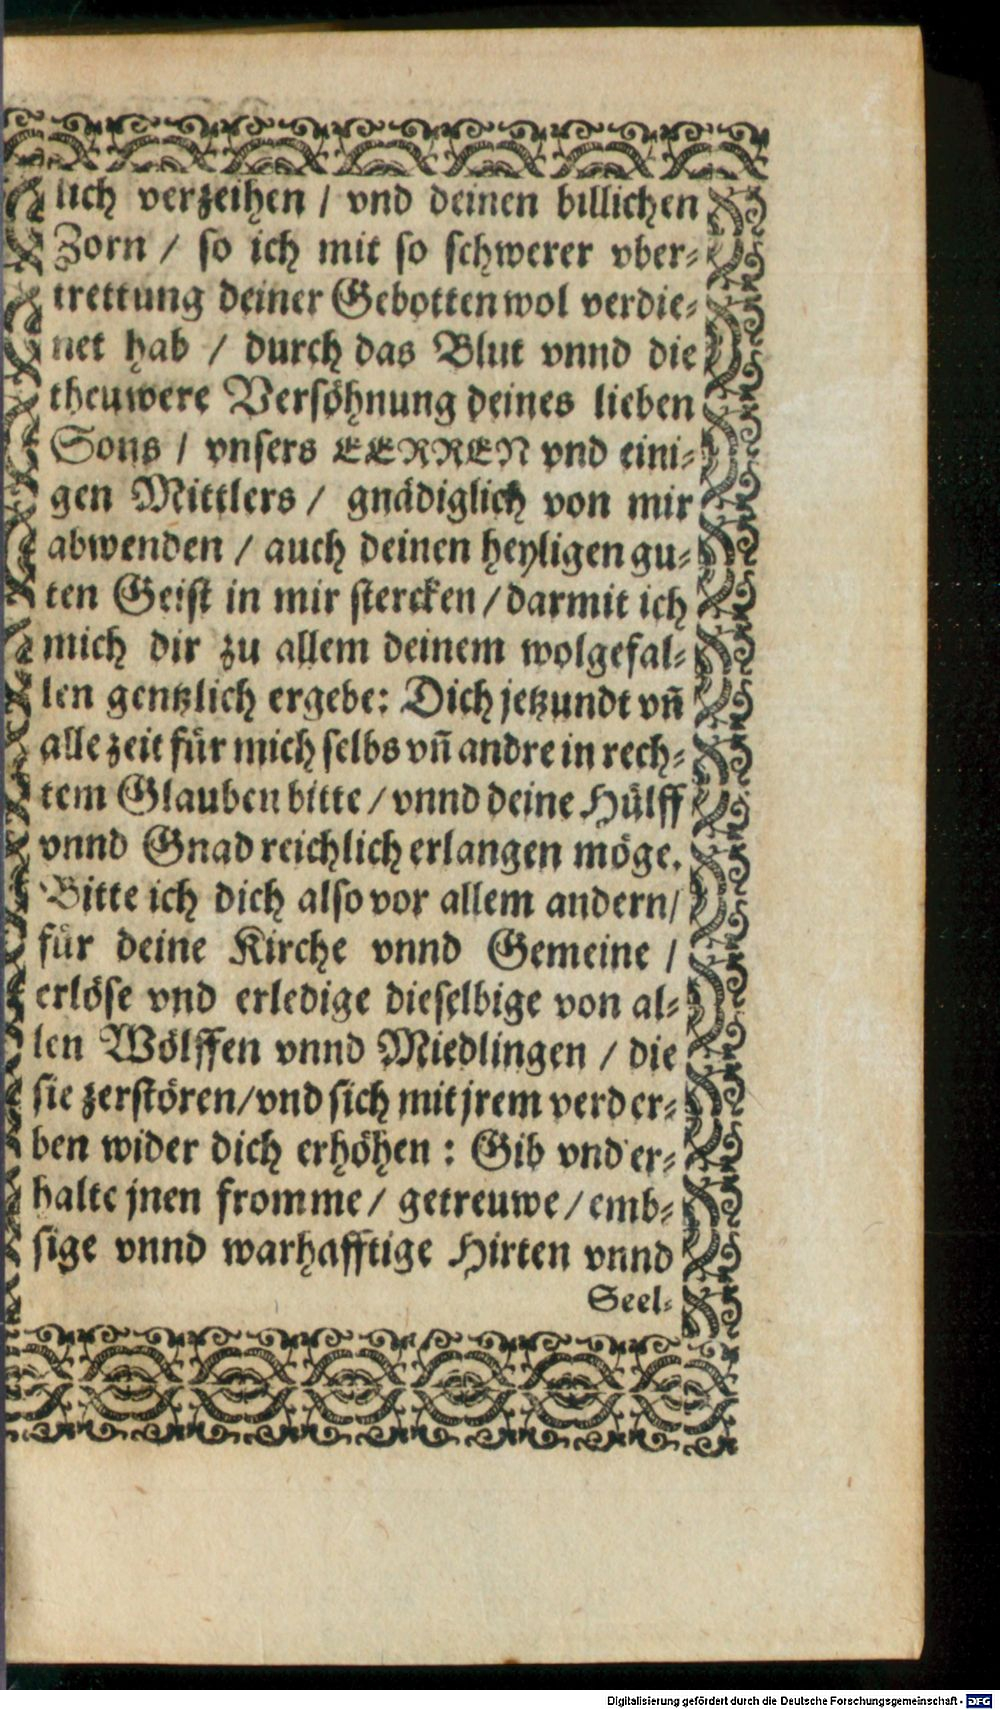 lich verzeihen / vnd deinen billichen
Zorn / so ich mit so schwerer vber-
trettung deiner Gebotten wol verdie-
net hab / durch das Blut vnnd die
theuwere Versöhnung deines lieben
Sons / vnsers HERREN vnd eini-
gen Mittlers / gnädiglich von mir
abwenden / auch deinen heyligen gu-
ten Geist in mir stercken / darmit ich
mich dir zu allem deinem wolgefal-
len gentzlich ergebe: Dich jetzundt vñ
alle zeit für mich selbs vñ andre in rech-
tem Glauben bitte / vnnd deine Hülff
vnnd Gnad reichlich erlangen möge.
Bitte ich dich also vor allem andern /
für deine Kirche vnnd Gemeine /
erlöse vnd erledige dieselbige von al-
len Wölffen vnnd Miedlingen / die
sie zerstören / vnd sich mit jrem verder-
ben wider dich erhöhen : Gib vnd er-
halte jnen fromme / getreuwe / emb-
sige vnnd warhafftige Hirten vnnd
Seel-
Digitalisierung gefördert durch die Deutsche Forschungsgemeinschaft - DFG